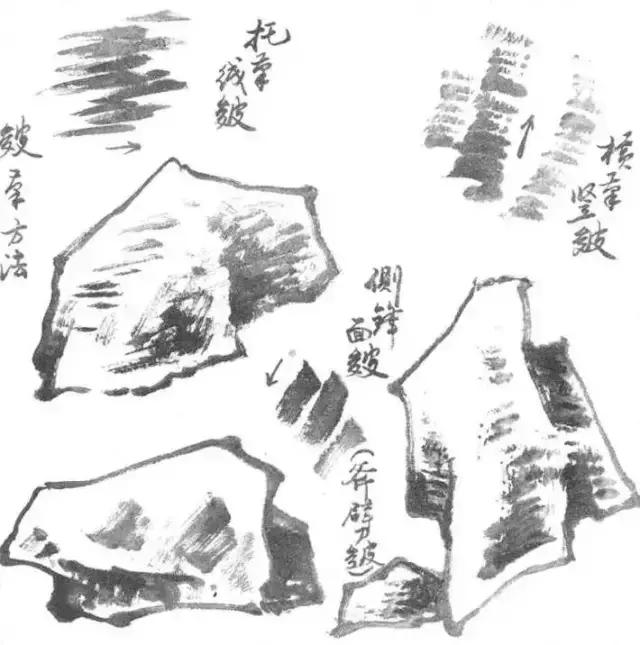 皴笔方法
托笔
线皴
横笔
竖皴
側鋒
面皴
(斧劈皴)